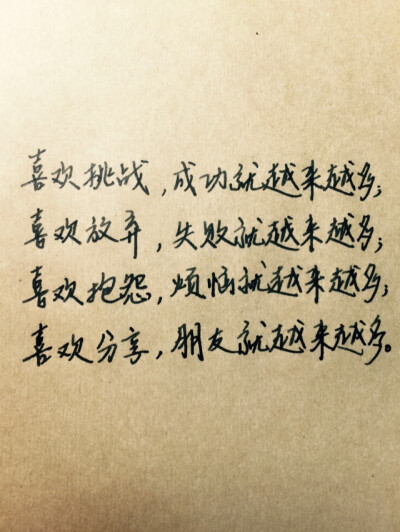 喜欢挑战,成功就越来越多;
喜欢放弃,失败就越来越多;
喜欢抱怨,烦恼就越来越多;
喜欢分享,朋友就越来越多。